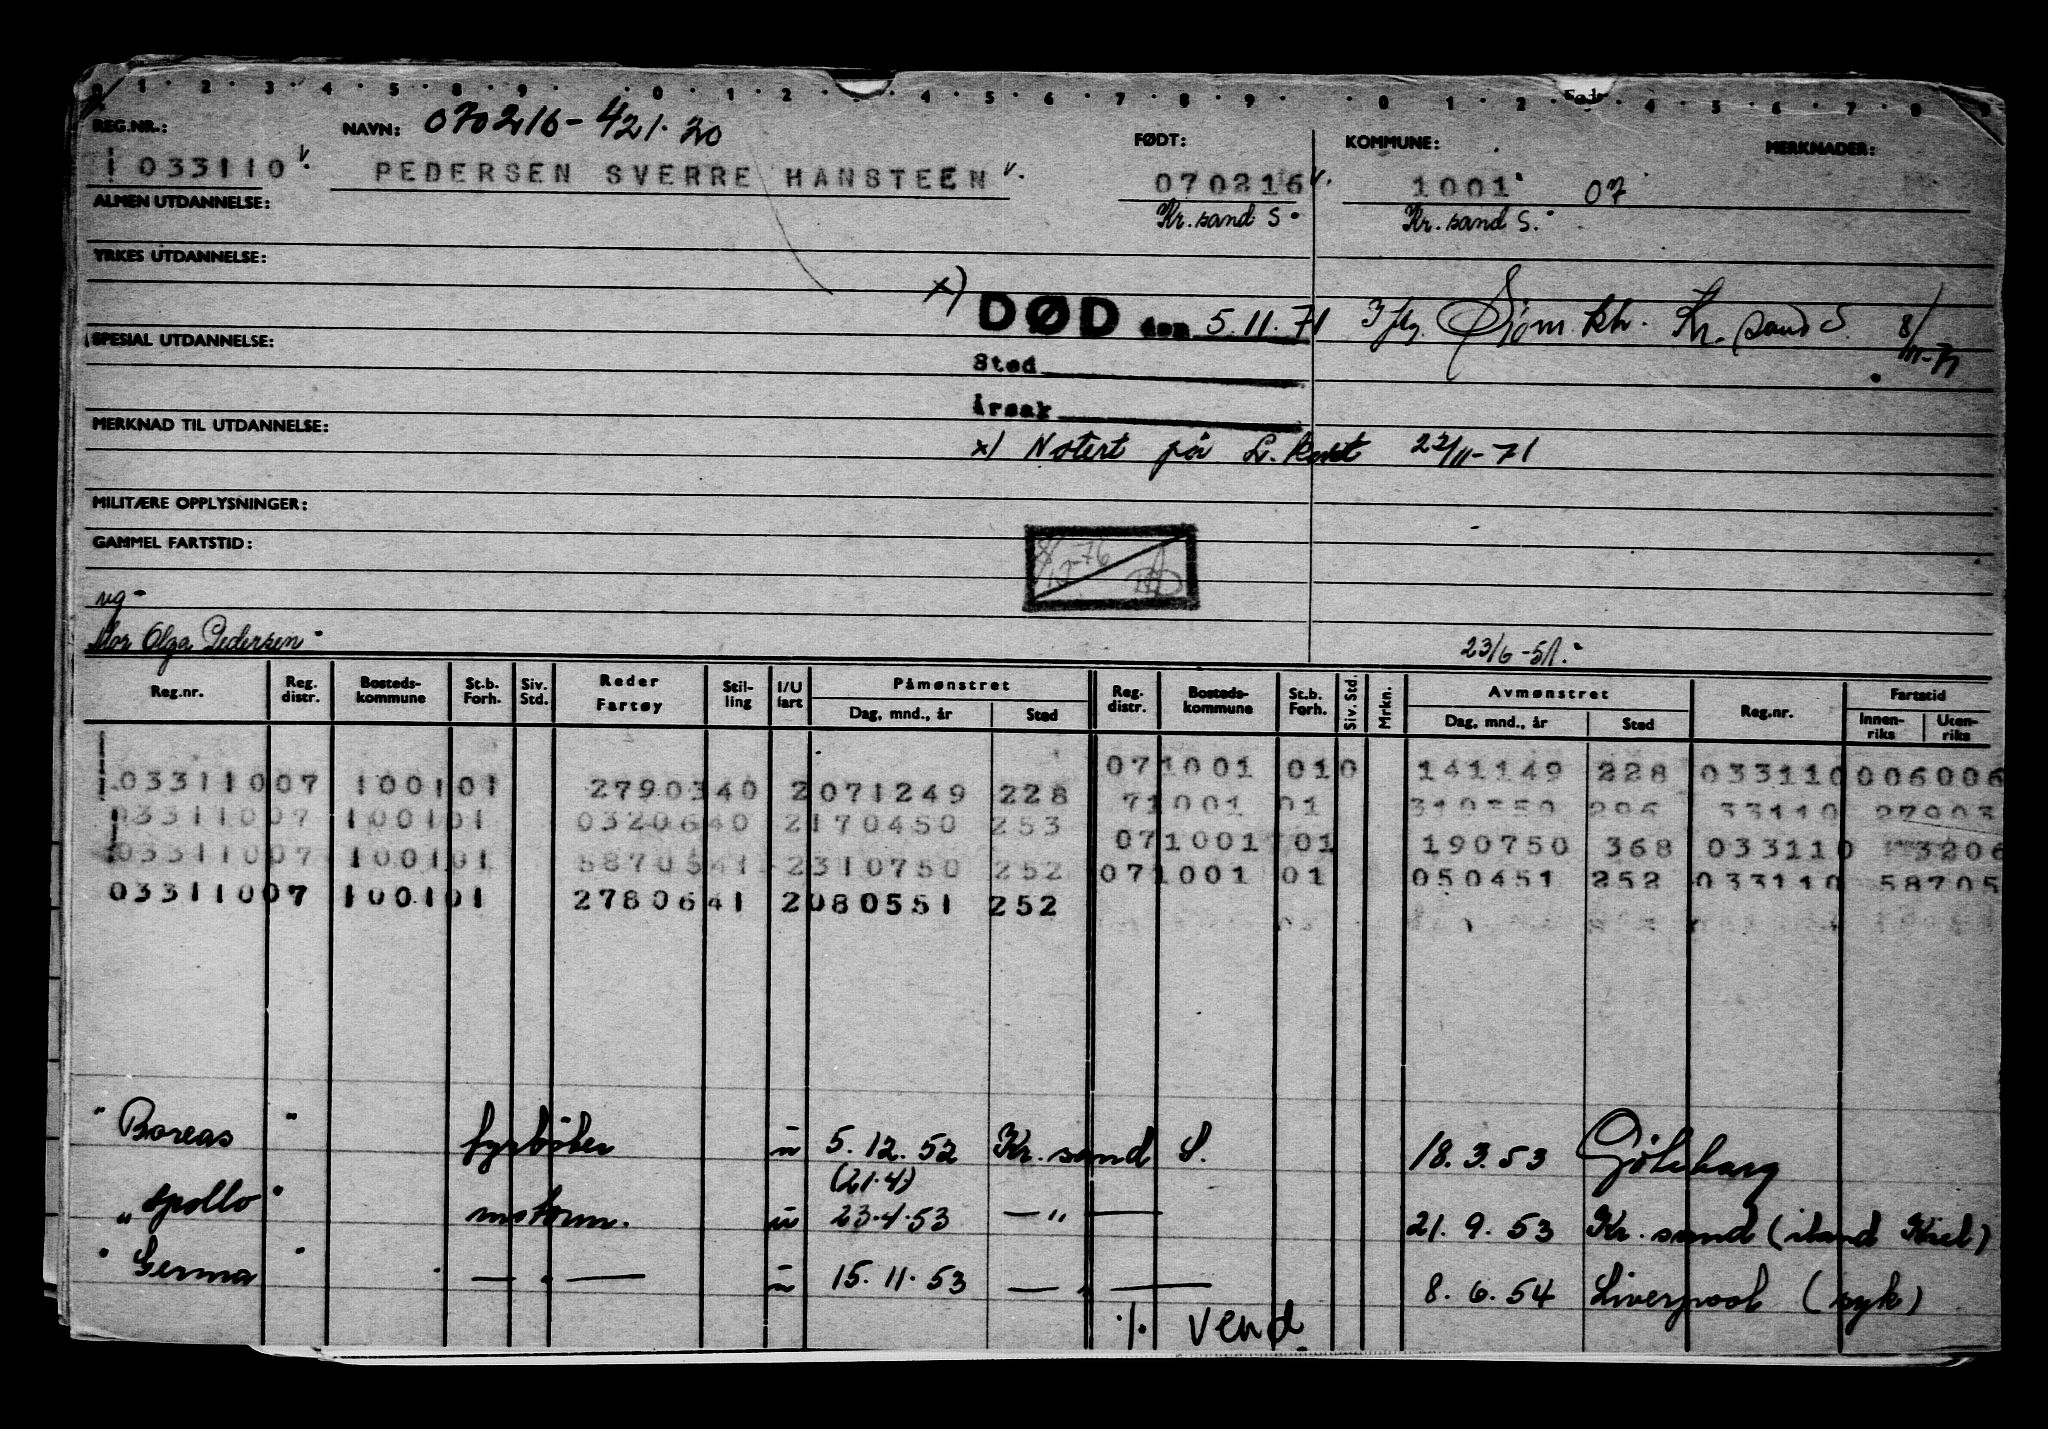 1 · 2 · 3 · 4 · 5 · 8 · 9 · · 0 · 1 · 2 · 4 · 5 · 6 · 7 · 8 · 9 · · 0 · 1 · 2 · 4 · 5 · 6 · 7 · 8
REG.NR.: NAVN: 070216-421.20 FØDT: KOMMUNE: MERKNADER:
1 033110 v. PEDERSEN SVERRE HANSTEEN v. 070216 v. 1001 07
ALMEN UTDANNELSE: Kr.sand S. Kr.sand S.
YRKES UTDANNELSE:
x) DØD den 5.11.71 Iflg. Sjøm.kh. Kr.sand S. 8/11-71
SPESIAL UTDANNELSE: Sted
Årsak
MERKNAD TIL UTDANNELSE: x) Notert på L.kart 22/11-71
MILITÆRE OPPLYSNINGER:
GAMMEL FARTSTID:
ug-
Mor Olga Pedersen. 23/6-51.
Reg.nr. Reg. distr. Bosteds-kommune St.b. Forh. Siv. Std. Reder Fartøy Stil-ling I/U fart Påmønstret Dag, mnd., år Sted Reg. distr. Bosteds-kommune St.b. Forh. Siv. Std. Mrkn. Avmønstret Dag, mnd., år Sted Reg.nr. Fartstid Innen-riks Uten-riks
071001 010 141149 228 033110 006006
03311007 100101 2790340 2071249 228
71001 01 310350 296 33110 27903
03311007 100101 0320640 2170450 253
071001 01 190750 368 033110 3206
03311007 100101 5870541 2310750 252
071001 01 050451 252 033110 58705
03311007 100101 2780641 2080551 252
"Boreas" fyrbøter u 5.12.52 Kr.sand S. 18.3.53 Göteborg
(21.4)
"Apollo" motorm. u 23.4.53 —"— 21.9.53 Kr.sand (iland Kiel)
"Germa" —"— u 15.11.53 —"— 8.6.54 Liverpool (syk)
./. Vend.